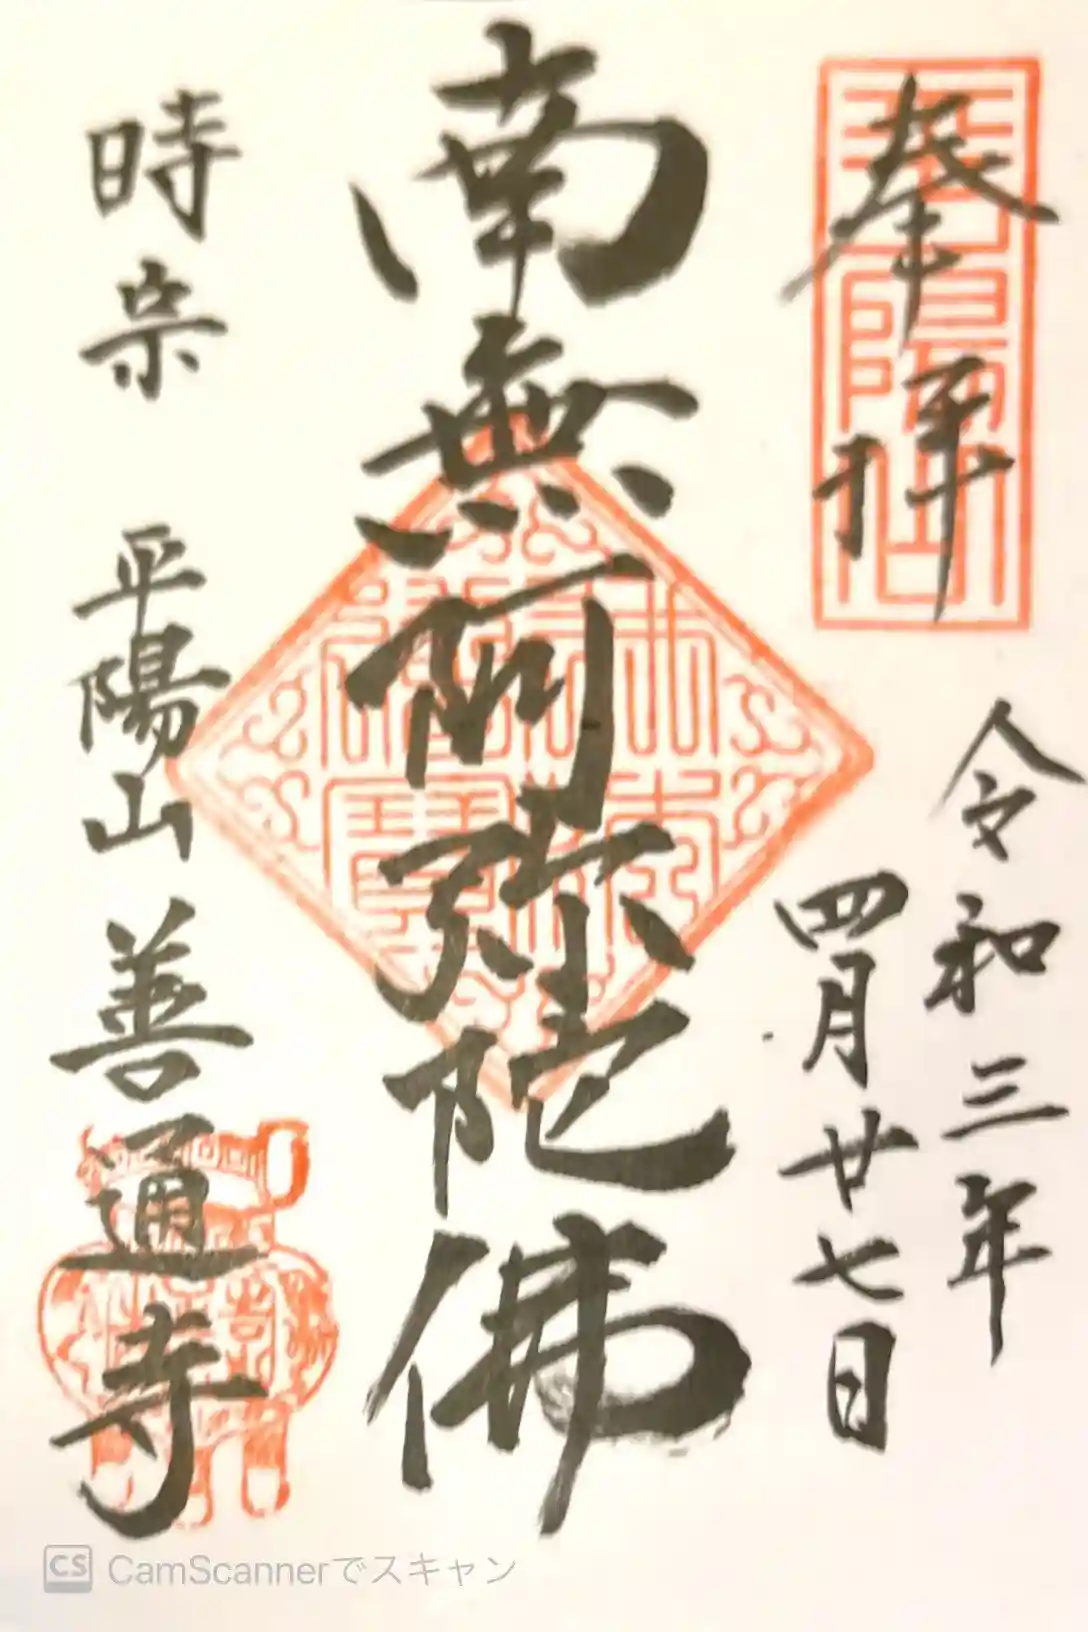 奉拝
令和三年
四月廿七日
南無阿弥陀佛
時宗 平陽山 善通寺
CS CamScannerでスキャン